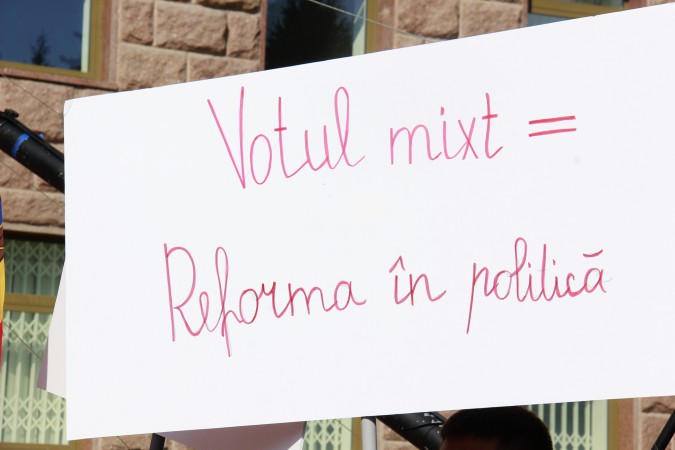 Votul mixt =
Reforma în politică